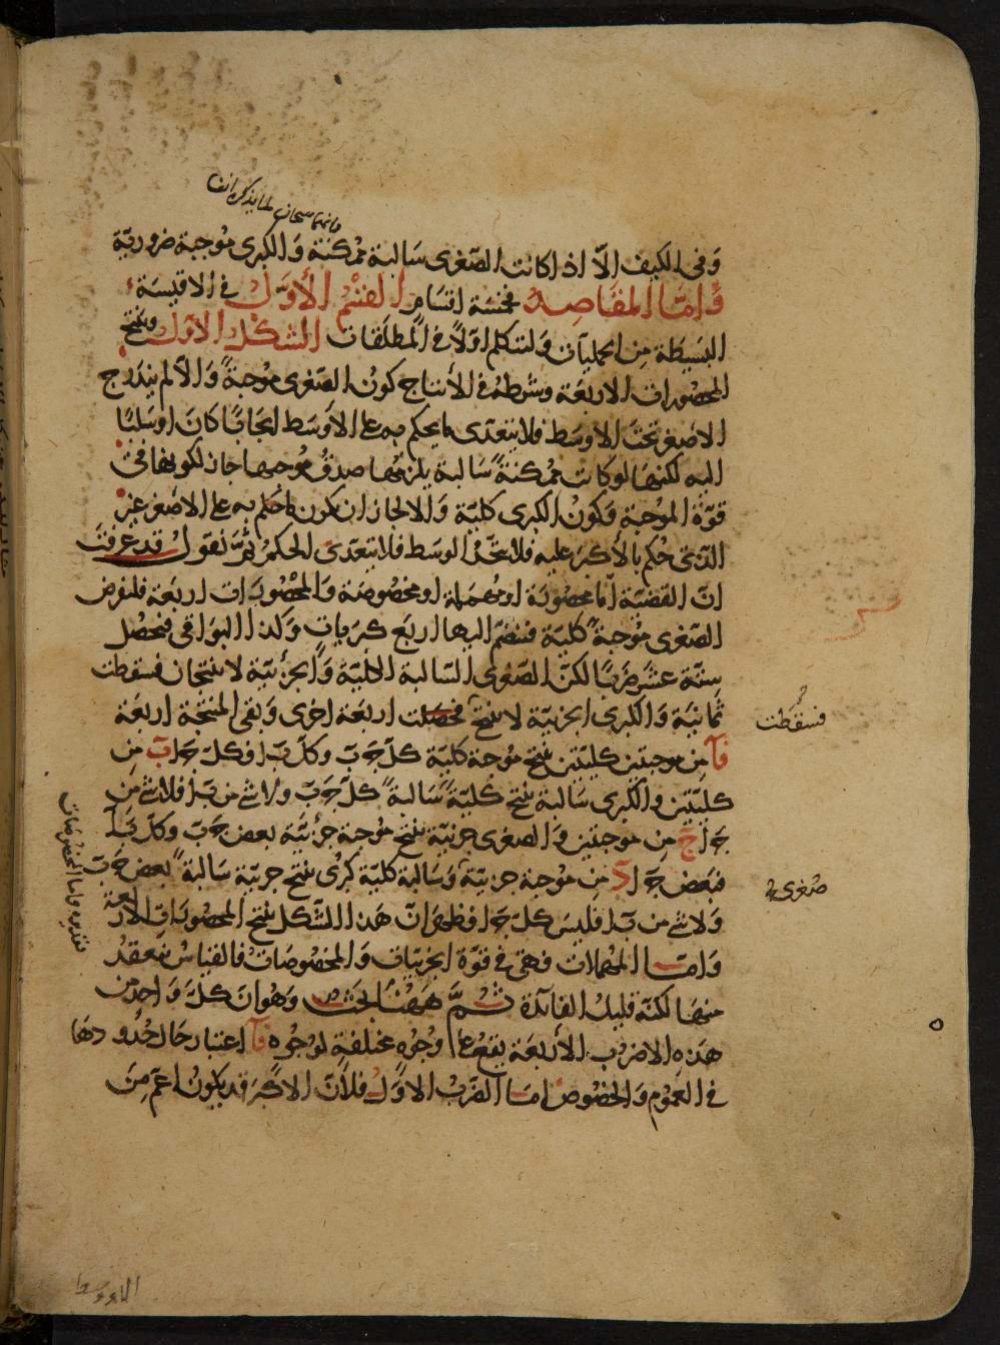 فانهما ينتجان لما يذكره انفا
وَفى الكيف الّا اذا كانت الصّغرى سَالبة مُمكنة وَالكبرى مُوجبة ضروريّة
وَامّا المقَاصِد فخمسَة اقسَام القسْم الأوّل فى الاقيسَة
البسيطة مِن الحمليات وَلنتكلم اوّلاً فى المطلقات الشكل الاوّل وينتج
المحصُورات الاربعَة وشرطهُ فى الأنتاج كونُ الصّغرى موجبةً وَالّا لم يندرج
الاصغر تحتَ الاوسَط فلا يتعدّى ما يحكم به على الأوسَط ايجَابًا كانَ اوسَلبًا
اليه لكنهَا لو كانت ممكنةً سَالبة يلزمُها صدق مُوجبها جاز لكونها فى
قوّة الموْجبَة وَكونُ الكبرى كليّة وَالا لجاز ان يكون ما حكم به على الاصغر غيْر
الذّى حُكم بالأكبَر عليه فلا يتّحد الوسَط فلا يتعدّى الحكمُ ثمّ نقول قد عرفتَ
انّ القضيّة امّا محصُورَة او مُهملة او مخصُوصَة وَالمحْصُورَات اربعَة فلنفرض
الصّغرى مُوْجبةً كليّة فننضمّ اليها اربَع كبريات وَكذا البوَاقى فيحصُل
ستّة عشر ضربًا لكنّ الصّغرى السّالبة الكليّة وَالجزئيّة لا ينتجان فسقطت
ثمانيَة وَالكبرى الجزئيّة لا تنتج فحصَلت اربعَة اخرى وَبقى المنتجة اربعَة
فسقطت
آ مِن موجبتين كليّتين ينتج مُوجبة كليّة كلّ جَ بَ وكلّ بَ ا فكلّ جَ ا بَ مِن
كليّتين وَالكبرى سَالبة ينتج كليّةً سَالبةً كلّ جَ بَ ولا شئ من بَ ا فلا شئ مِن
جَ ا جَ مِن موجبتين وَالصغرى جزئيّة ينتج مُوجبة جزئيّة بعض جَ بَ وكلّ بَ ا
فبَعض جَ ا دَ مِن مُوجبة جزئيّة وَسَالبة كليّة كبرى ينتج جزئيّة سَالبةً بعض جَ بَ
صُغرى
وَلا شئ من بَ ا فليسَ كلّ جَ ا فظهرَ انّ هَذا الشّكل ينتج المحصُورَات الأربعة
وَامّا المهْملات فهىَ فى قوّة الجزئيّات وَالمخصُوصَات فالقياسُ ينعقدُ
منهَا لكنّه قليلُ الفائدة ثُمَّ ههُنَا بحث وَهُوَ انَ كلّ وَاحِدٍ من
هَذِه الاضرُب الأربعَة يقعُ على وجُوه مختلفةٍ لوجُوه آ اعتبار حَال حُدودهَا
فى العمُوم وَالخصُوص امّا الضّربُ الاوّلُ فلأنّ الاكبَرَ قد يكونُ اعَمّ مِنَ
الاوسط